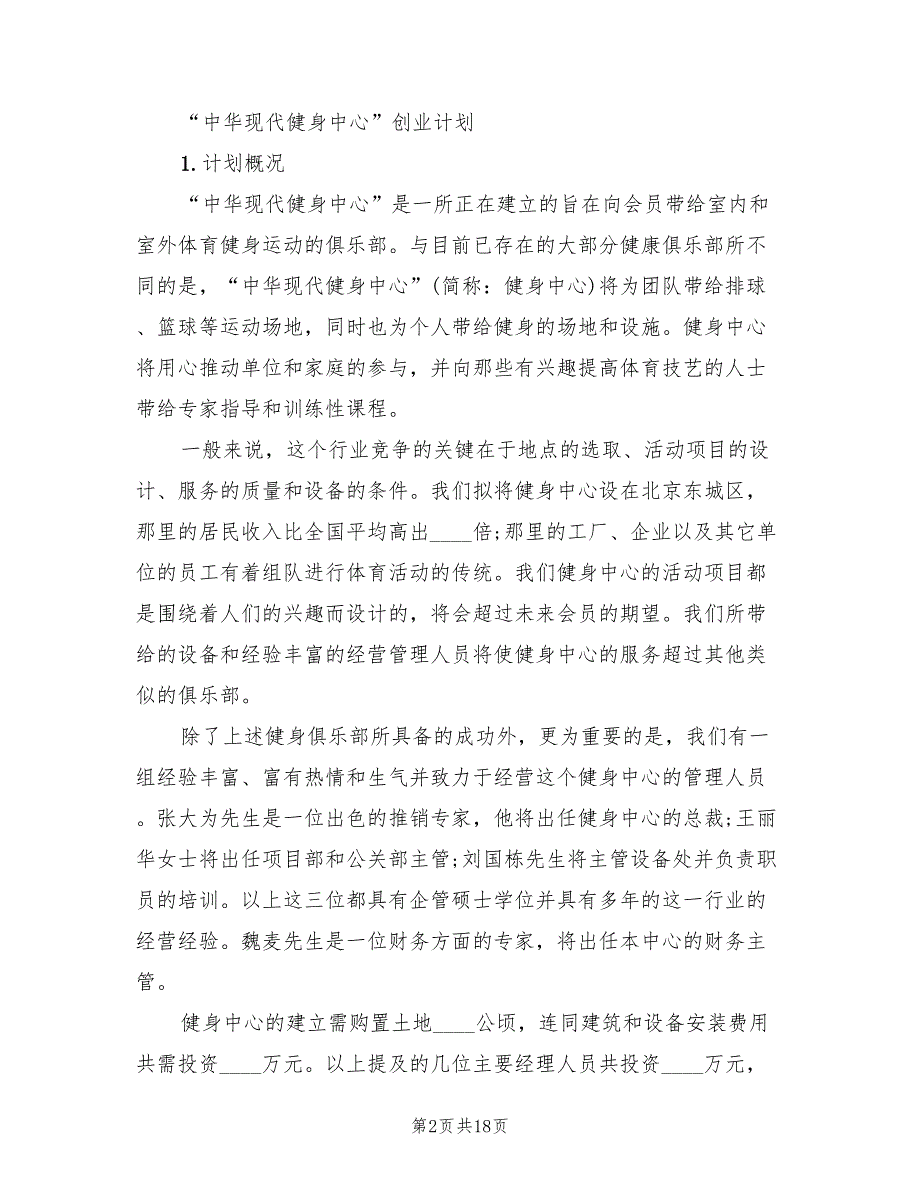 “中华现代健身中心”创业计划
1. 计划概况
“中华现代健身中心”是一所正在建立的旨在向会员带给室内和
室外体育健身运动的俱乐部。与目前已存在的大部分健康俱乐部所不
同的是，“中华现代健身中心”(简称：健身中心)将为团队带给排球
、篮球等运动场地，同时也为个人带给健身的场地和设施。健身中心
将用心推动单位和家庭的参与，并向那些有兴趣提高体育技艺的人士
带给专家指导和训练性课程。
一般来说，这个行业竞争的关键在于地点的选取、活动项目的设
计、服务的质量和设备的条件。我们拟将健身中心设在北京东城区，
那里的居民收入比全国平均高出____倍;那里的工厂、企业以及其它单
位的员工有着组队进行体育活动的传统。我们健身中心的活动项目都
是围绕着人们的兴趣而设计的，将会超过未来会员的期望。我们所带
给的设备和经验丰富的经营管理人员将使健身中心的服务超过其他类
似的俱乐部。
除了上述健身俱乐部所具备的成功外，更为重要的是，我们有一
组经验丰富、富有热情和生气并致力于经营这个健身中心的管理人员
。张大为先生是一位出色的推销专家，他将出任健身中心的总裁;王丽
华女士将出任项目部和公关部主管;刘国栋先生将主管设备处并负责职
员的培训。以上这三位都具有企管硕士学位并具有多年的这一行业的
经营经验。魏麦先生是一位财务方面的专家，将出任本中心的财务主
管。
健身中心的建立需购置土地____公顷，连同建筑和设备安装费用
共需投资____万元。以上提及的几位主要经理人员共投资____万元，
第2页共18页